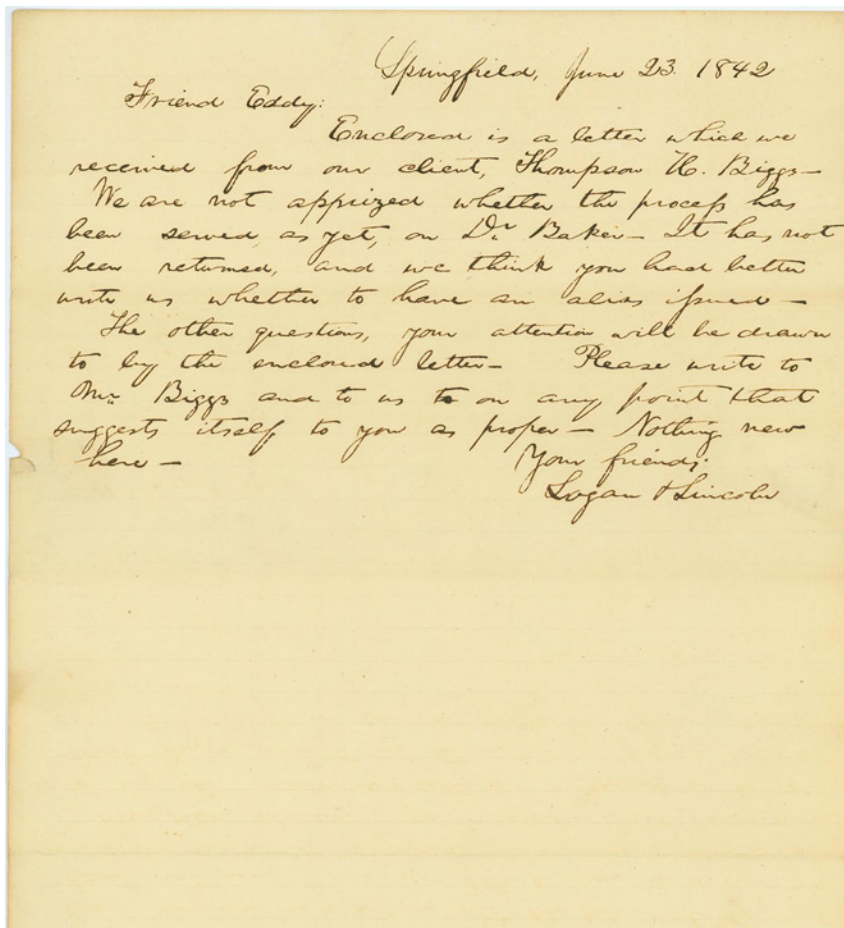 Springfield, June 23. 1842
Friend Eddy:
Enclosed is a letter which we
received from our client, Thompson H. Biggs—
We are not apprized whether the process has
been served, as yet, on Dr. Baker— It has not
been returned, and we think you had better
write us whether to have an alias issued—
The other questions, your attention will be drawn
to by the enclosed letter— Please write to
Mr. Biggs and to us to on any point that
suggests itself to you as proper— Nothing new
here—
Your friends,
Logan & Lincoln